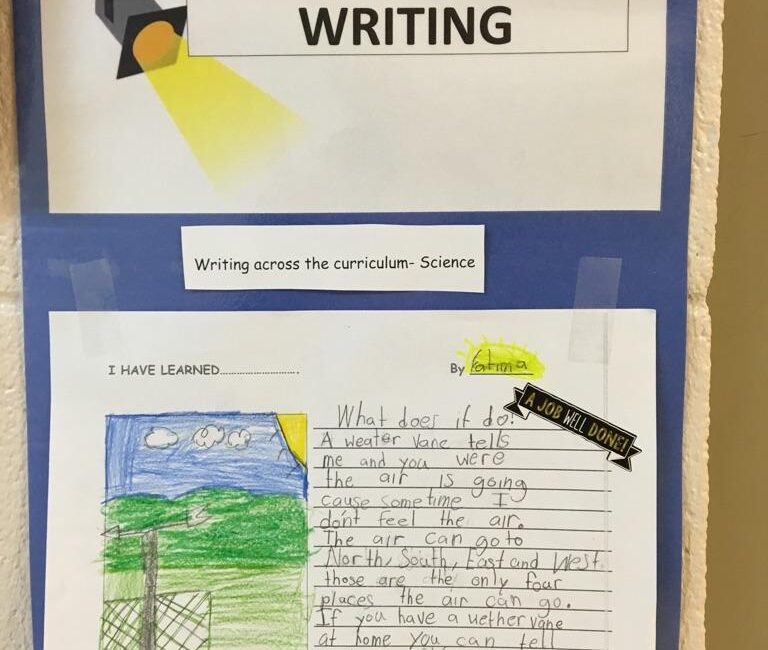 WRITING
Writing across the curriculum- Science
I HAVE LEARNED..............................
By Fatima
A JOB WELL DONE!
What does it do!
A weater vane tells
me and you were
the air is going
cause sometime I
don't feel the air.
The air can go to
North, South, East and West.
those are the only four
places the air can go.
If you have a wether vane
at home you can tell